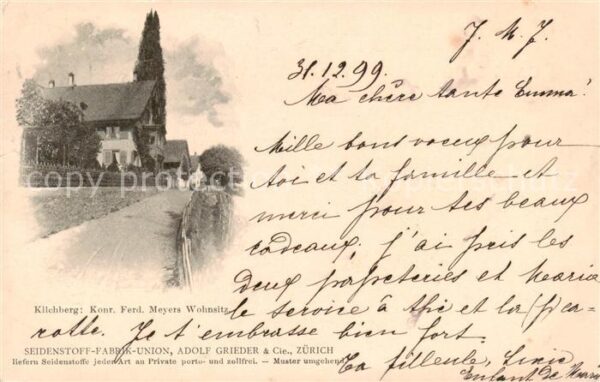 J. M. J.
31.12.99.
Ma chère tante Emma!
Mille bons voeux pour
toi et ta famille et
merci pour tes beaux
cadeaux. j'ai pris les
deux papeteries et Maria
le service à thé et la
rotte. Je t'embrasse bien fort.
Ta filleule,
Enfant de Marie
Kilchberg: Konr. Ferd. Meyers Wohnsitz
SEIDENSTOFF-FABRIK-UNION, ADOLF GRIEDER & Cie., ZÜRICH
liefern Seidenstoffe jeden Art an Private porto- und zollfrei. — Muster umgehend.
copy